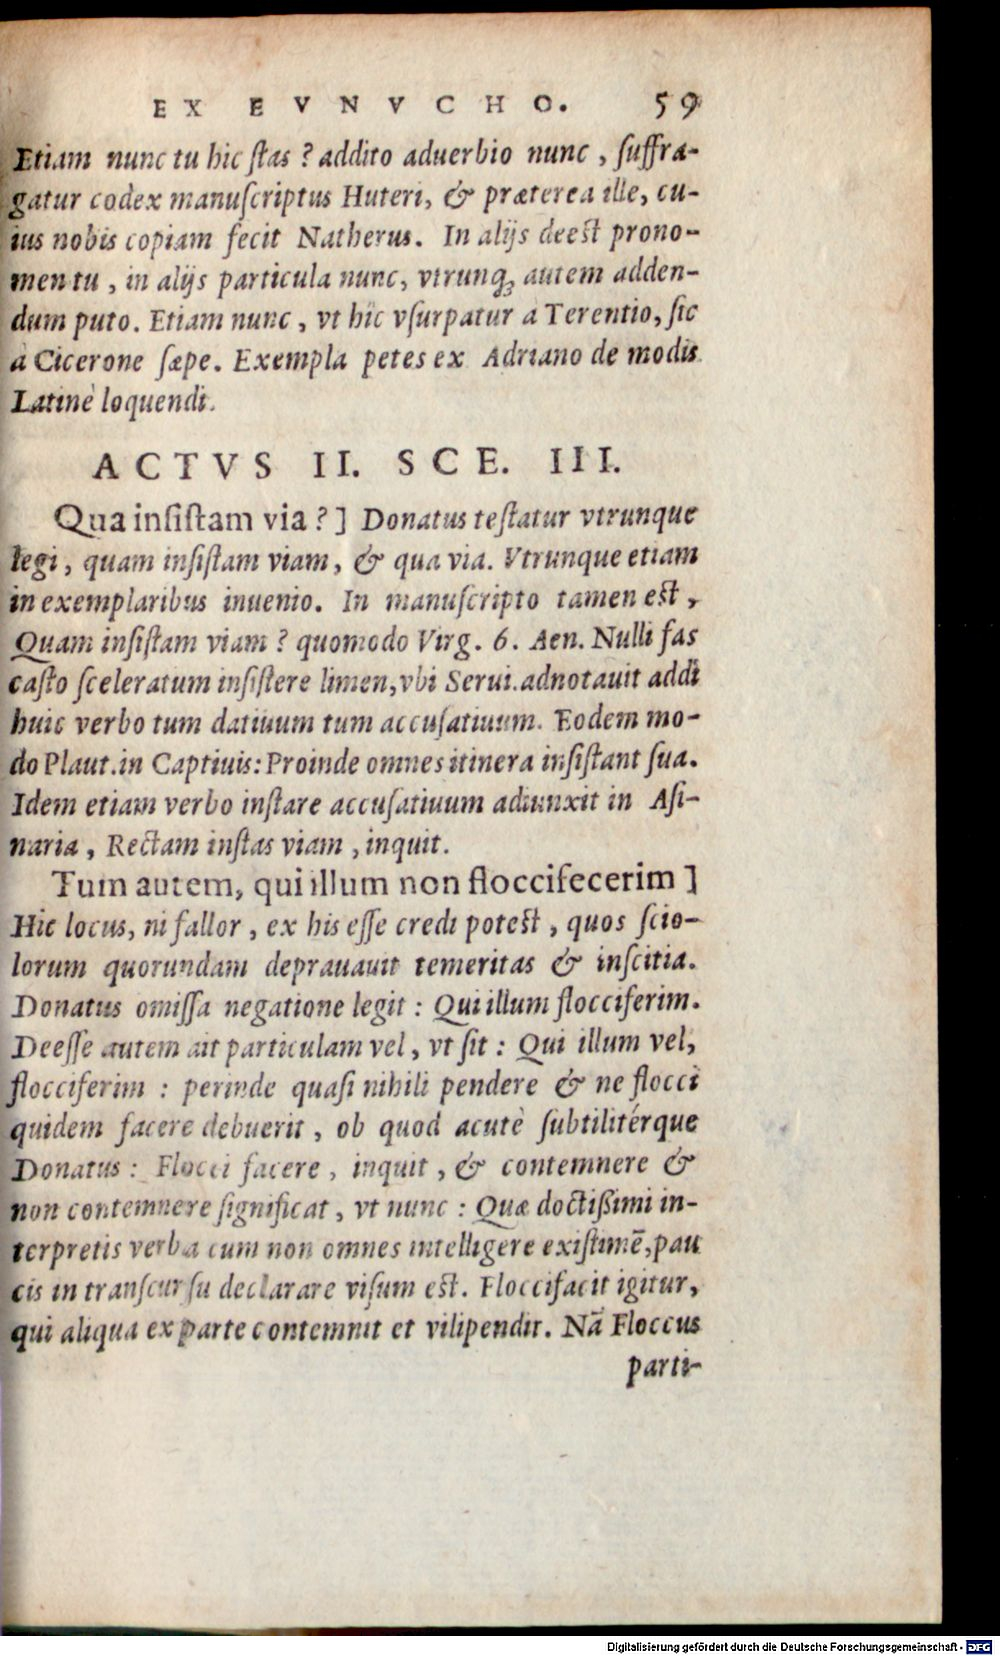 EX EVNVCHO. 59
Etiam nunc tu hic ſtas ? addito aduerbio nunc , ſuffra-
gatur codex manuſcriptus Huteri, & præterea ille, cu-
ius nobis copiam fecit Natherus. In alijs deest prono-
men tu , in alijs particula nunc, vtrunq́ꝫ autem adden-
dum puto. Etiam nunc , vt hîc vſurpatur à Terentio, ſic
à Cicerone ſæpe. Exempla petes ex Adriano de modis
Latinè loquendi.
ACTVS II. SCE. III.
Qua inſiſtam via ? ] Donatus teſtatur vtrunque
legi , quam inſiſtam viam , & qua via. Vtrunque etiam
in exemplaribus inuenio. In manuſcripto tamen est ,
Quam inſiſtam viam ? quomodo Virg. 6. Aen. Nulli fas
caſto ſceleratum inſiſtere limen, vbi Serui. adnotauit addi
huic verbo tum datiuum tum accuſatiuum. Eodem mo-
do Plaut. in Captiuis: Proinde omnes itinera inſiſtant ſua.
Idem etiam verbo inſtare accuſatiuum adiunxit in Aſi-
naria , Rectam inſtas viam , inquit.
Tum autem, qui illum non floccifecerim ]
Hic locus, ni fallor , ex his eſſe credi potest , quos ſcio-
lorum quorundam deprauauit temeritas & inſcitia.
Donatus omiſſa negatione legit : Qui illum flocciferim.
Deeſſe autem ait particulam vel , vt ſit : Qui illum vel,
flocciferim : perinde quaſi nihili pendere & ne flocci
quidem facere debuerit , ob quod acutè ſubtilitérque
Donatus : Flocci facere , inquit , & contemnere &
non contemnere ſignificat , vt nunc : Quæ doctißimi in-
terpretis verba cum non omnes intelligere exiſtimẽ, pau
cis in tranſcurſu declarare viſum est. Floccifacit igitur,
qui aliqua ex parte contemnit et vilipendit. Nã Floccus
parti-
Digitalisierung gefördert durch die Deutsche Forschungsgemeinschaft - DFG